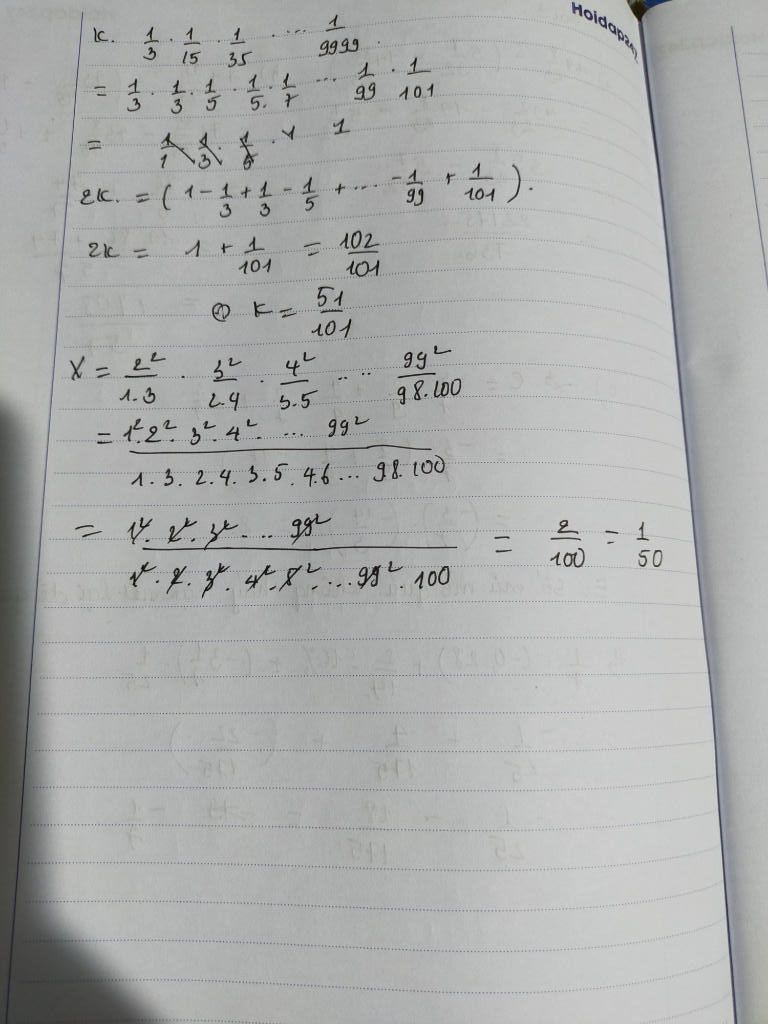 Hoidap247
K. 1/3 . 1/15 . 1/35 ... 1/9999.
= 1/3 . 1/3 . 1/5 . 1/5 . 1/7 ... 1/99 . 1/101
= 1/1 . 1/3 . 1/5 . 1 1
2K. = ( 1 - 1/3 + 1/3 - 1/5 + ... - 1/99 + 1/101 ).
2K = 1 + 1/101 = 102/101
K = 51/101
X = 2²/1.3 . 3²/2.4 . 4²/3.5 ... 99²/98.100
= 1².2².3².4². ... 99² / 1.3.2.4.3.5.4.6 ... 98.100
= 1².2².3² ... 99² / 1².2.3².4².5² ... 99².100 = 2/100 = 1/50